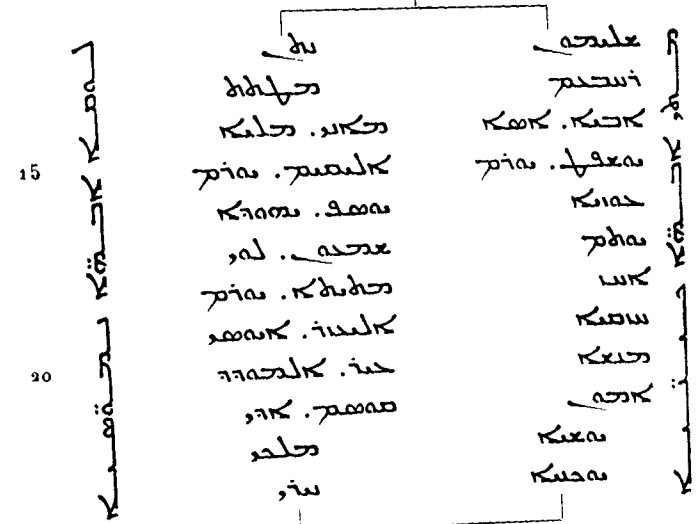 ܡܬܝ ܐܒܗ̈ܐ
ܫܠܝܡܘܢ
ܪܚܒܥܡ
ܐܒܝܐ. ܐܣܐ
ܝܘܫܦܛ. ܝܘܪܡ
ܥܘܙܝܐ
ܝܘܬܡ
ܐܚܙ
ܚܙܩܝܐ
ܡܢܫܐ
ܐܡܘܢ
ܝܘܫܝܐ
ܝܘܟܢܝܐ
ܢܬܢ
ܡܛܬܬ
ܡܐܢܝ. ܡܠܝܐ
ܐܠܝܩܝܡ. ܝܘܪܡ
ܝܘܣܦ. ܝܗܘܕܐ
ܫܡܥܘܢ. ܠܘܝ
ܡܬܝܬܐ. ܝܘܪܡ
ܐܠܝܥܙܪ. ܐܝܘܣܝ
ܥܝܪ. ܐܠܡܘܕܕ
ܩܘܣܡ. ܐܕܝ
ܡܠܟܝ
ܢܪܝ
ܠܘܩܐ ܐܒܗ̈ܐ
15
20